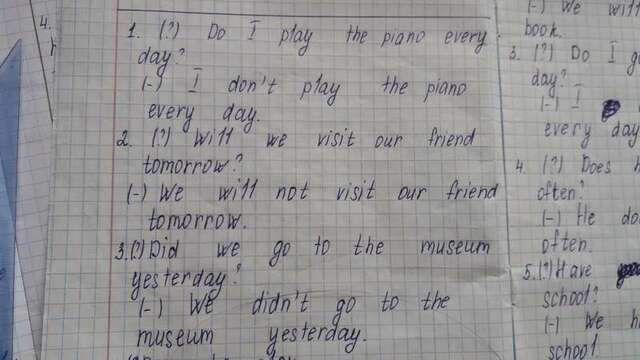 4.
1. (?) Do I play the piano every
day?
(-) I don't play the piano
every day.
2. (?) Will we visit our friend
tomorrow?
(-) We will not visit our friend
tomorrow.
3. (?) Did we go to the museum
yesterday?
(-) We didn't go to the
museum yesterday.
(-) We will
book.
3. (?) Do I
day?
(-) I
every day
4. (?) Does
often?
(-) He
often.
5. (?) Have
school?
(-) We
school